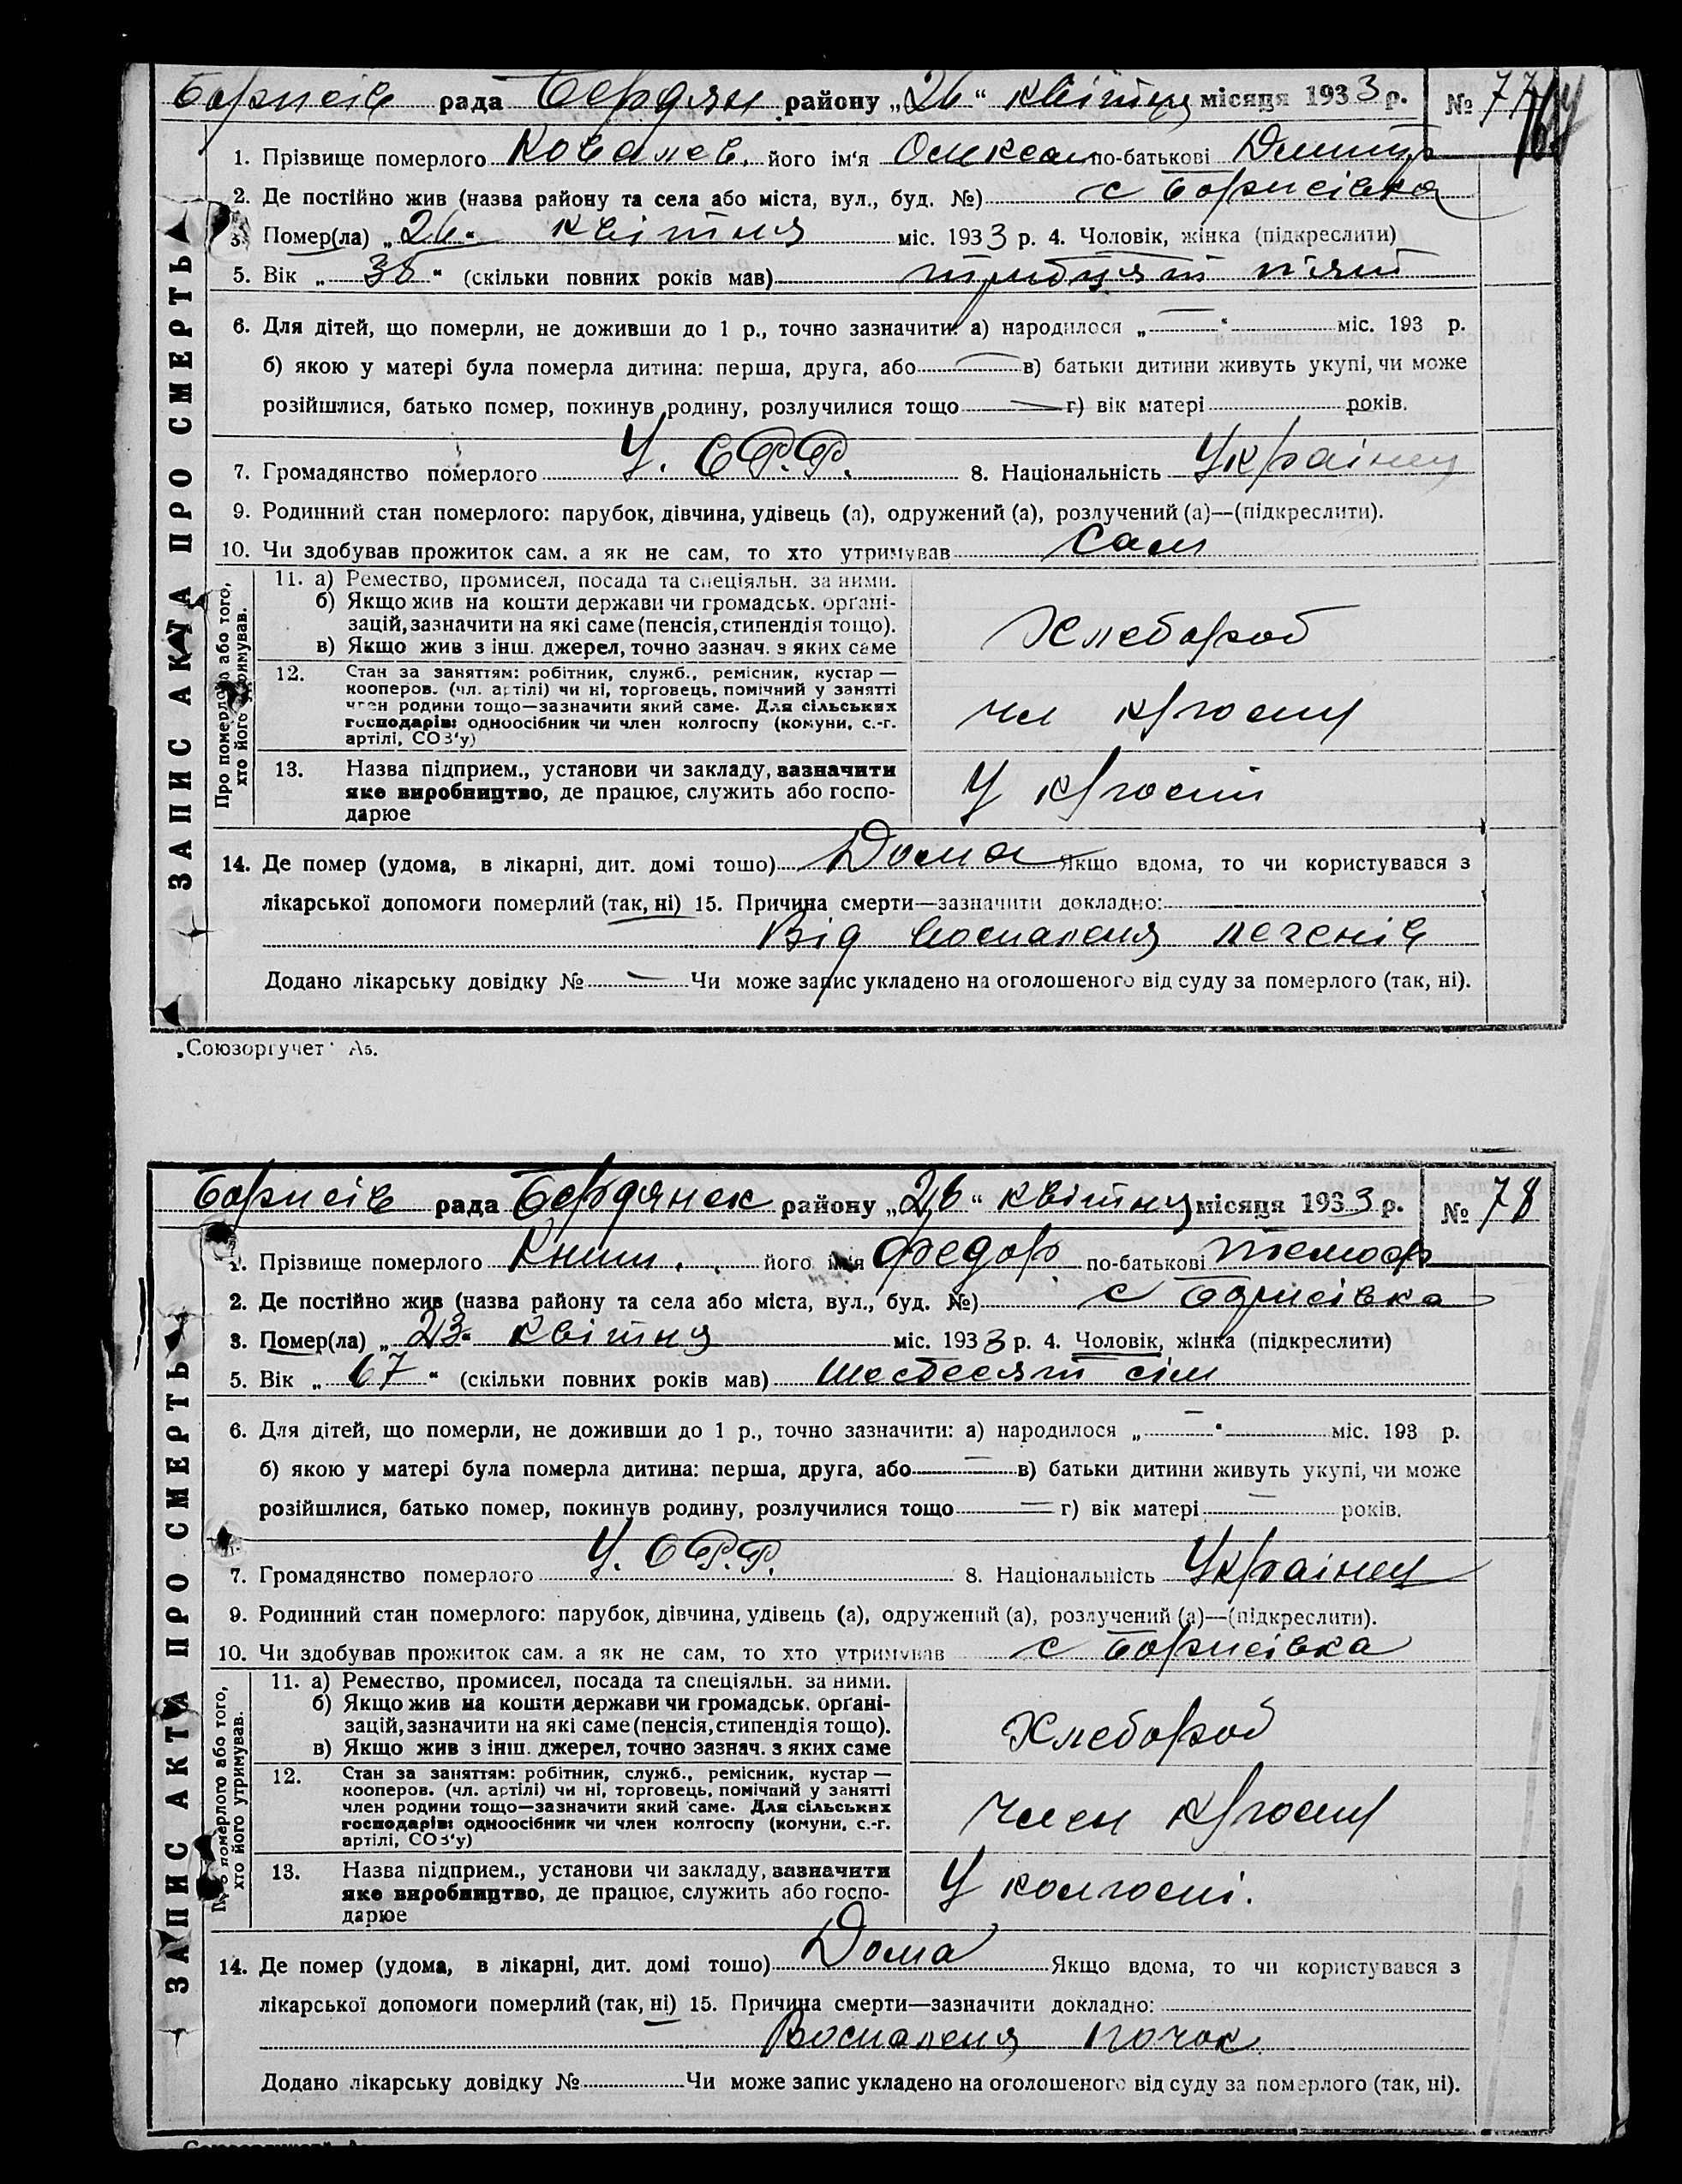 Борисів рада Бердян району „26“ квітня місяця 1933 р. № 77
1. Прізвище померлого Ковалев його ім'я Олексан по-батькові Дмитр
2. Де постійно жив (назва району та села або міста, вул., буд. №) с Борисівка
3. Помер(ла) „26“ квітня міс. 1933 р. 4. Чоловік, жінка (підкреслити)
5. Вік „35“ (скільки повних років мав) трибцят пʼять
6. Для дітей, що померли, не доживши до 1 р., точно зазначити: а) народилося „—“ міс. 193 р.
б) якою у матері була померла дитина: перша, друга, або — в) батьки дитини живуть укупі, чи може
розійшлися, батько помер, покинув родину, розлучилися тощо — г) вік матері років.
7. Громадянство померлого У.СР.Р. 8. Національність Українец
9. Родинний стан померлого: парубок, дівчина, удівець (а), одружений (а), розлучений (а)—(підкреслити).
10. Чи здобував прожиток сам, а як не сам, то хто утримував Сам
ЗАПИС АКТА ПРО СМЕРТЬ
Про померлого або того,
хто його утримував.
11. а) Ремество, промисел, посада та спеціяльн. за ними.
б) Якщо жив на кошти держави чи громадськ. орґані-
зацій, зазначити на які саме (пенсія, стипендія тощо).
в) Якщо жив з інш. джерел, точно зазнач. з яких саме
Хлебороб
12. Стан за заняттям: робітник, служб., ремісник, кустар —
кооперов. (чл. артілі) чи ні, торговець, помічний у занятті
член родини тощо—зазначити який саме. Для сільських
господарів: одноосібник чи член колгоспу (комуни, с.-г.
артілі, СОЗ'у)
чл
13. Назва підприєм., установи чи закладу, зазначити
яке виробництво, де працює, служить або госпо-
дарюе
У
14. Де помер (удома, в лікарні, дит. домі тошо) Дома Якщо вдома, то чи користувався з
лікарської допомоги померлий (так, ні) 15. Причина смерти—зазначити докладно:
Від воспаленя печенів
Додано лікарську довідку № — Чи може запис укладено на оголошеного від суду за померлого (так, ні).
„Союзоргучет“ А5.
Борисів рада Бердянск району „26“ квітня місяця 1933 р. № 78
1. Прізвище померлого Книш. його ім'я Федор по-батькові Тимоф
2. Де постійно жив (назва району та села або міста, вул., буд. №) с Борисівка
3. Помер(ла) „23“ квітня міс. 1933 р. 4. Чоловік, жінка (підкреслити)
5. Вік „67“ (скільки повних років мав) шестьесят сім
6. Для дітей, що померли, не доживши до 1 р., точно зазначити: а) народилося „—“ міс. 193 р.
б) якою у матері була померла дитина: перша, друга, або — в) батьки дитини живуть укупі, чи може
розійшлися, батько помер, покинув родину, розлучилися тощо — г) вік матері — років.
7. Громадянство померлого У.СР.Р. 8. Національність Українец
9. Родинний стан померлого: парубок, дівчина, удівець (а), одружений (а), розлучений (а)—(підкреслити).
10. Чи здобував прожиток сам, а як не сам, то хто утримував с Борисівка
ЗАПИС АКТА ПРО СМЕРТЬ
Про померлого або того,
хто його утримував.
11. а) Ремество, промисел, посада та спеціяльн. за ними.
б) Якщо жив на кошти держави чи громадськ. орґані-
зацій, зазначити на які саме (пенсія, стипендія тощо).
в) Якщо жив з інш. джерел, точно зазнач. з яких саме
Хлебороб
12. Стан за заняттям: робітник, служб., ремісник, кустар —
кооперов. (чл. артілі) чи ні, торговець, помічний у занятті
член родини тощо—зазначити який саме. Для сільських
господарів: одноосібник чи член колгоспу (комуни, с.-г.
артілі, СОЗ'у)
член
13. Назва підприєм., установи чи закладу, зазначити
яке виробництво, де працює, служить або госпо-
дарюе
У колгоспі.
14. Де помер (удома, в лікарні, дит. домі тошо) Дома Якщо вдома, то чи користувався з
лікарської допомоги померлий (так, ні) 15. Причина смерти—зазначити докладно:
Воспаленя почок
Додано лікарську довідку № Чи може запис укладено на оголошеного від суду за померлого (так, ні).